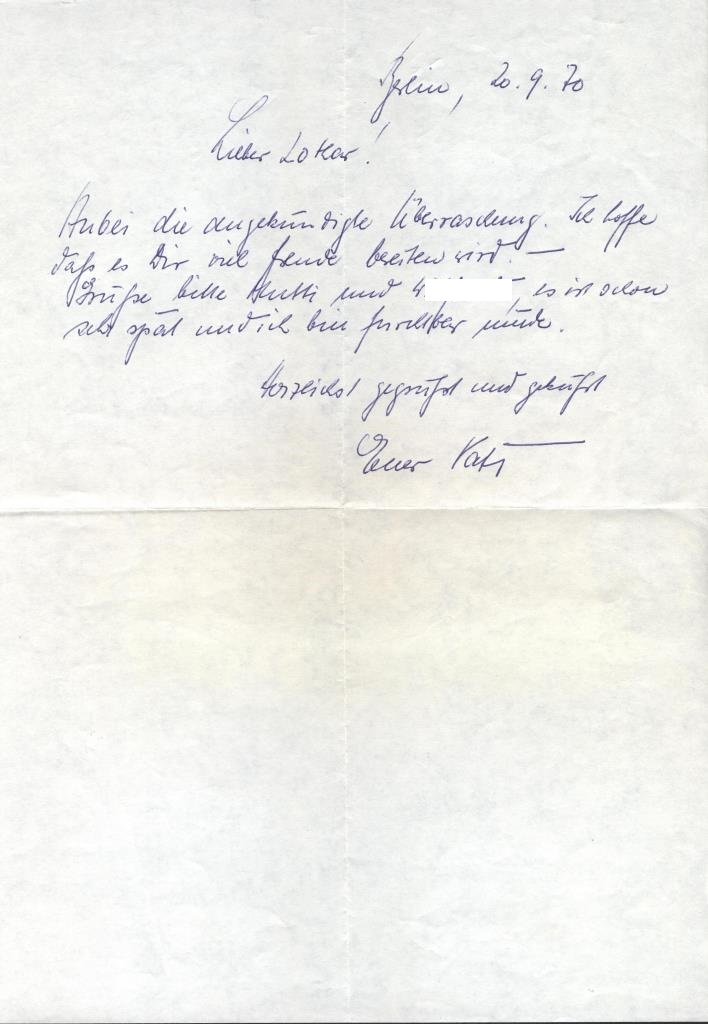 Berlin, 20.9.70
Lieber Lothar!
Anbei die angekündigte Überraschung. Ich hoffe
daß es Dir viel Freude bereiten wird. —
Grüße bitte Mutti und , es ist schon
sehr spät und ich bin furchtbar müde.
Herzlichst gegrüßt und geküßt
Euer Vati